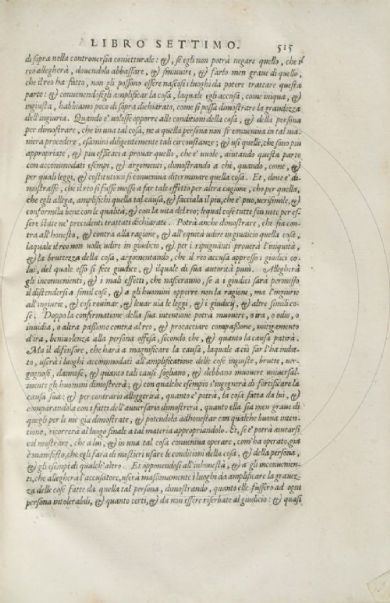 LIBRO SETTIMO. 515
di sopra nella controversia conietturale: &, se egli non potrà negare quello, che il
reo allegherà, dovendolo abbassare, & smuovere, & farlo men grave di quello,
che il reo ha fatto, non gli possono essere nascosi i luoghi da potere trattare questa
parte: & convenendosegli amplificare la cosa, laquale egli accusa, come iniqua, &
ingiusta, habbiamo poco di sopra dichiarato, come si possa dimostrare la grandezza
dell'ingiuria. Quando e' volesse opporre alle conditioni della cosa, & della persona
per dimostrare, che in una tal cosa, ne a quella persona non si conveniva in tal ma-
niera procedere, esamini diligentemente tali circunstanze; & usi quelle, che sono piu
appropriate, & piu efficaci a provare quello, che e' vuole, aiutando questa parte
con accommodati esempi, & argomenti, dimostrando a chi, quando, come, &
per quali leggi, & constitutioni si conveniva determinare quella cosa. Et, dove e' di-
mostrasse, che il reo si fusse messo a far tale effetto per altra cagione, che per quella,
che egli allega, amplifichi quella tal causa, & facciala il piu, che e' può, verisimile, &
conforme a bene con le qualità, & con la vita del reo; lequal cose tutte son note per es-
sere state ne' precedenti trattati dichiarate. Potrà anche dimostrare, che sia con-
tra all'honesto, & contra alla ragione, & all'equità udire in giudicio quella cosa,
laquale il reo non volle udire in giudicio, & per i repugnanti proverà l'iniquità,
& la bruttezza della cosa, argomentando, che il reo accusa appresso i giudici co-
lui, del quale esso si fece giudice, & ilquale da sua autorità punì. Allegherà
gli inconvenienti, & i mali effetti, che nascerebbono, se a i giudici sarà permesso
il distendersi a simil cose, & a gli huomini opporre non la ragione, ma l'ingiuria
all'ingiuria, & esser ruinar, & levar via le leggi, & i giudicij, & altre simili co-
se. Doppo la confirmatione della sua intentione potrà muovere, o ira, o odio, o
invidia, o altra passione contra al reo, & procacciare compassione, mitigamento
d'ira, benivolenza alla persona offesa, secondo che & quanto la causa patirà.
Ma il difensore, che harà a magnificare la causa, laquale a ciò far l'ha indut-
to, userà i luoghi accommodati all'amplificatione delle cose ingiuste, brutte, ver-
gognose, dannose, & quanto tali cause sogliano, & debbano muovere universal-
mente gli huomini dimostrerà; & con qualche esempio s'ingegnerà di fortificare la
causa sua: & per contrario alleggerirà, quanto e' potrà, la cosa fatta da lui, &
comparandola con i fatti dell'avversario dimostrerà, quanto ella sia men grave di
quegli per le vie già dimostrate, & potendola adhonestare con qualche buona inten-
tione, ricorrerà al luogo finale a tal materia appropriandolo. Et, se e' potrà aiutarsi
col mostrare, che a lui, & in una tal cosa conveniva operare, com'ha operato, già
è manifesto, che egli farà di mestieri usare le conditioni della cosa, & della persona,
& gli esempi di qualch'altro. Et opponendosi all'inhonestà, & a gli inconvenien-
ti, che allegherà l'accusatore, userà massimamente i luoghi da amplificare la gravez-
za delle cose fatte da quella tal persona, dimostrando, quanto elle fussero ad ogni
persona intolerabili, & quanto certi, & da non essere riserbate al giudicio: & quasi